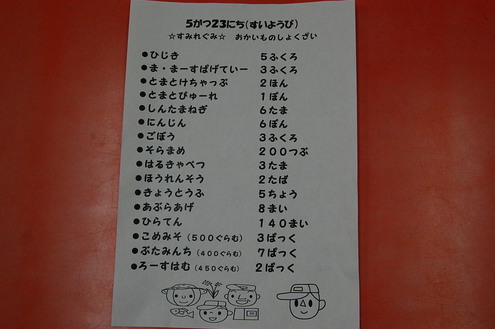 5がつ23にち(すいようび)
☆すみれぐみ☆ おかいものしょくざい
●ひじき 5ふくろ
●ま・まーすぱげてぃー 3ふくろ
●とまとけちゃっぷ 2ほん
●とまとぴゅーれ 1ぽん
●しんたまねぎ 6たま
●にんじん 6ぽん
●ごぼう 3ふくろ
●そらまめ 200つぶ
●はるきゃべつ 3たま
●ほうれんそう 2たば
●きょうとうふ 5ちょう
●あぶらあげ 8まい
●ひらてん 140まい
●こめみそ(500ぐらむ) 3ぱっく
●ぶたみんち(400ぐらむ) 7ぱっく
●ろーすはむ(450ぐらむ) 2ぱっく